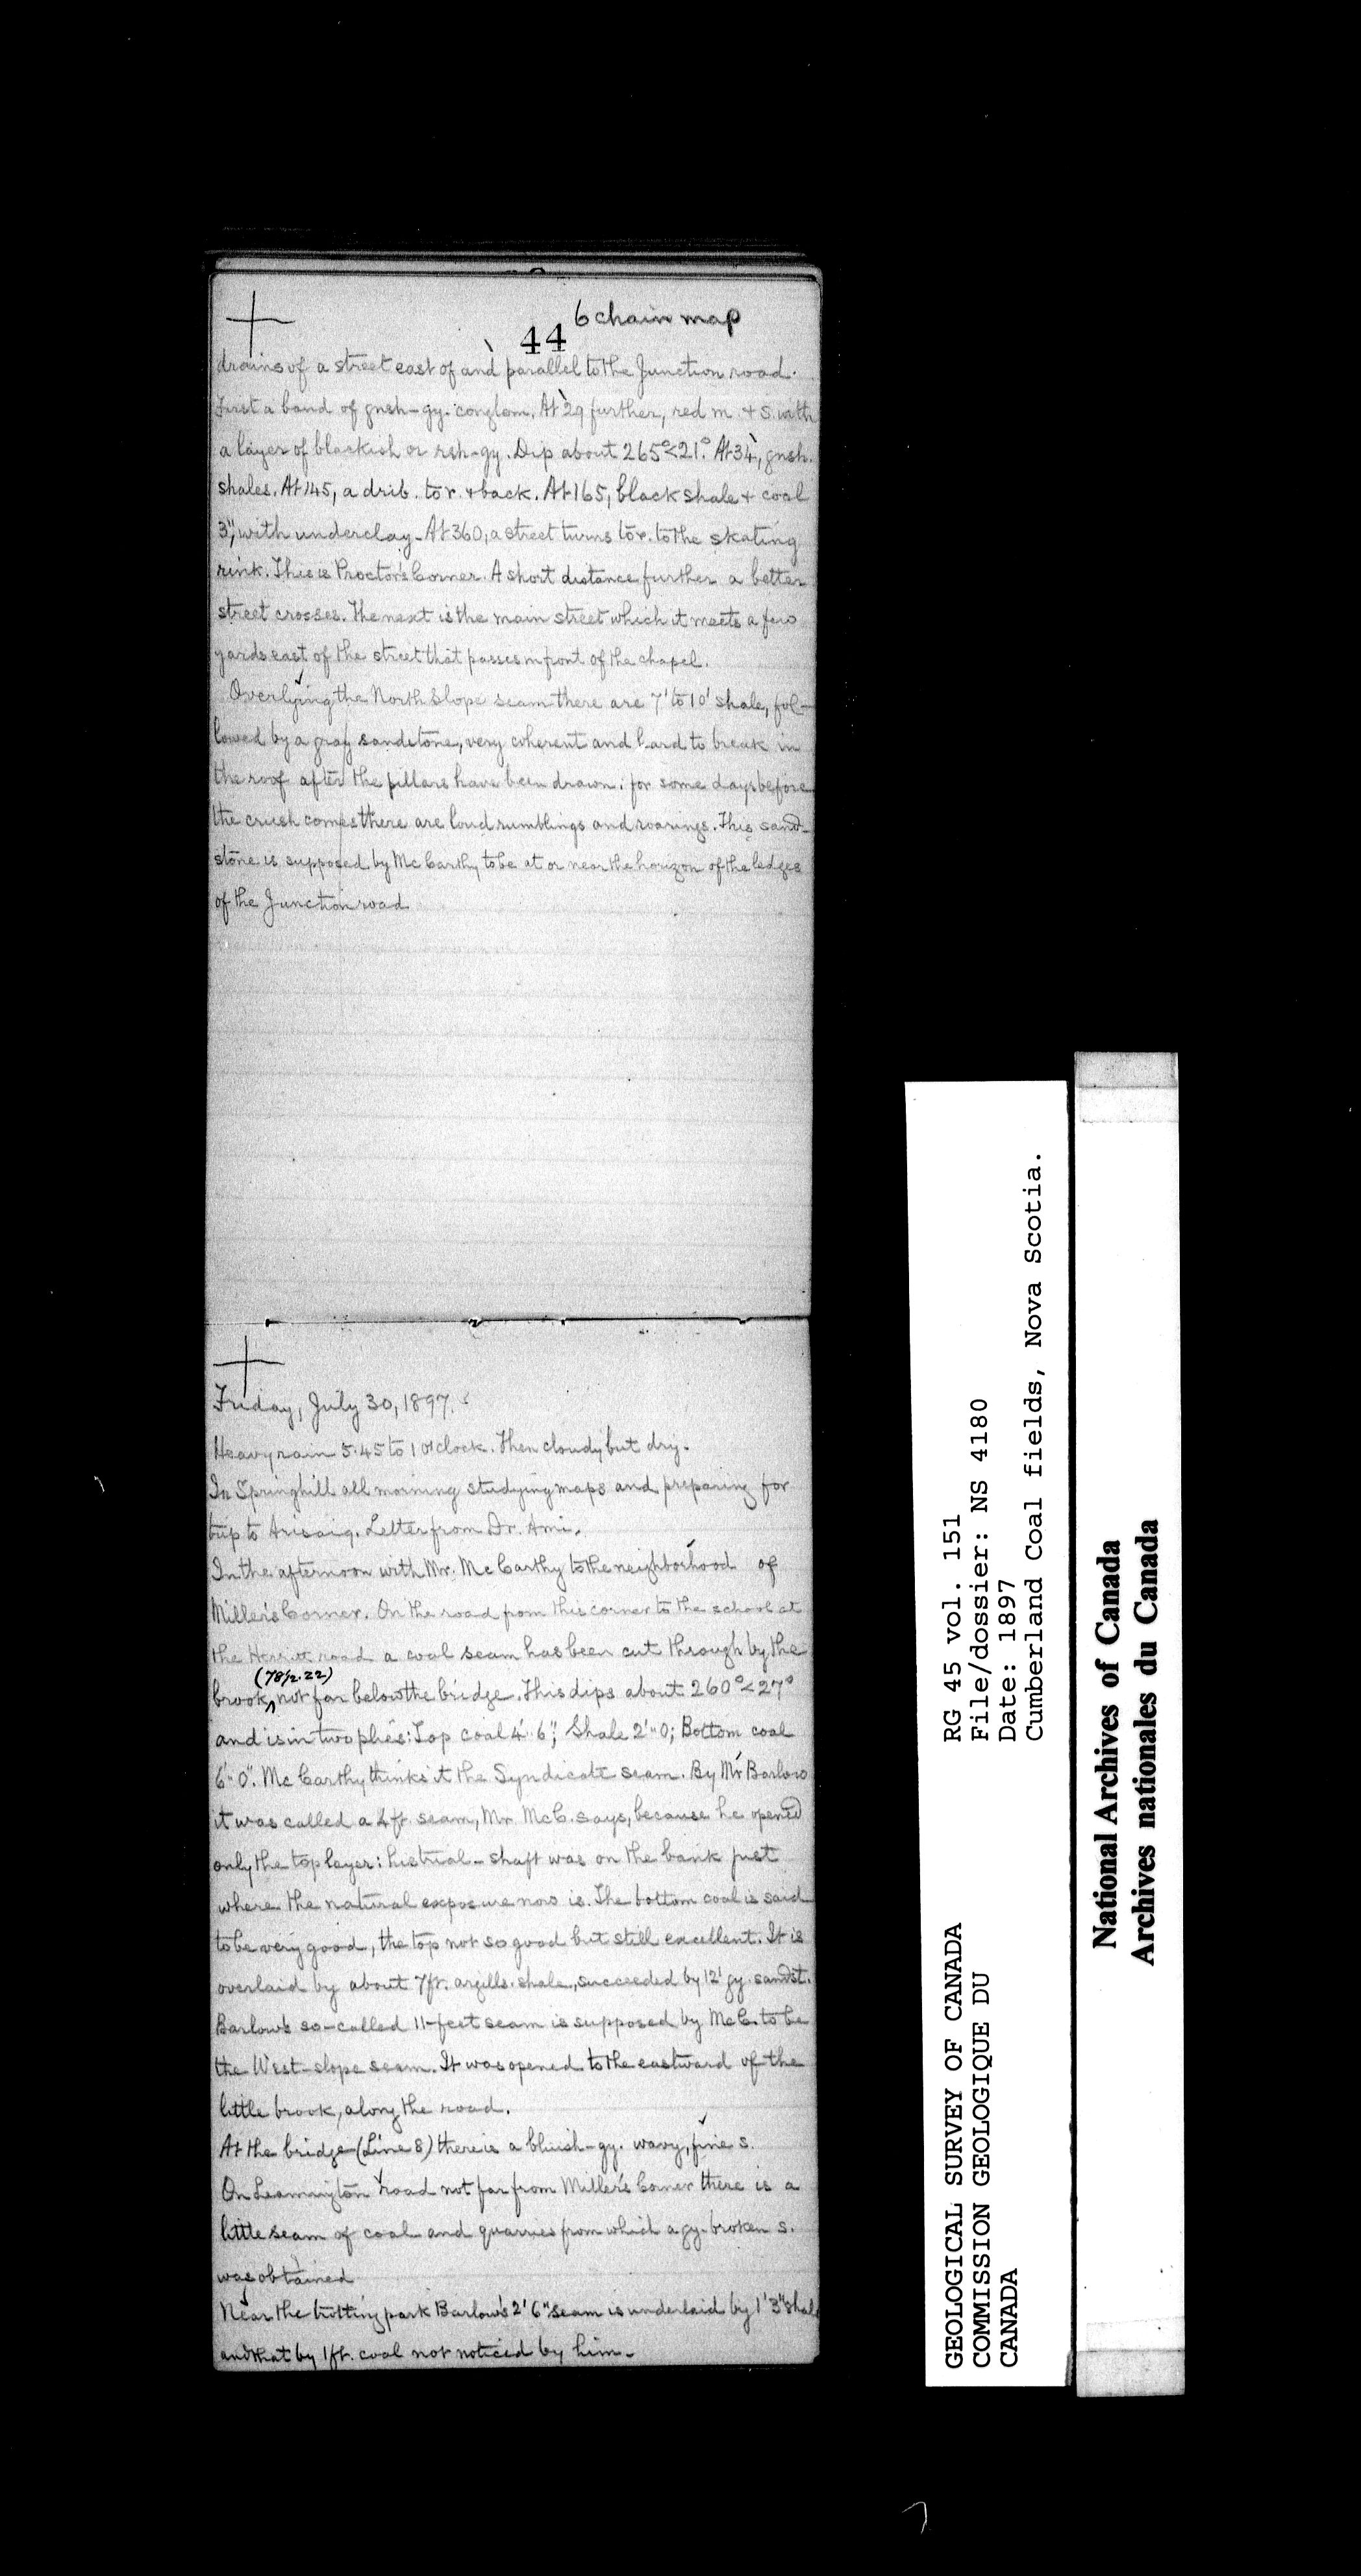 6 chain map
44
drains of a street east of and parallel to the Junction road.
First a band of gnsh-gy. conglom. At 29 further, red m. + s. with
a layer of blackish or rsh-gy. Dip about 265°<21°. At 34, gnsh.
shales. At 145, a drib. to r. + back. At 165, black shale + coal
3", with underclay. At 360, a street turns to r. to the skating
rink. This is Proctor's Corner. A short distance further a better
street crosses. The next is the main street which it meets a few
yards east of the street that passes in front of the chapel.
Overlying the North Slope seam there are 7' to 10' shale, fol-
lowed by a gray sandstone, very coherent and hard to break in
the roof after the pillars have been drawn: for some days before
the crush comes there are loud rumblings and roarings. This sand-
stone is supposed by McCarthy to be at or near the horizon of the ledges
of the Junction road
Friday, July 30, 1897.
Heavy rain 5.45 to 1 o'clock. Then cloudy but dry.
In Springhill all morning studying maps and preparing for
trip to Arisaig. Letter from Dr. Ami.
In the afternoon with Mr. McCarthy to the neighborhood of
Miller's Corner. On the road from this corner to the school at
the Herritt road a coal seam has been cut through by the
(78/2.22)
brook, not far below the bridge. This dips about 260°<27°
and is in two plies: Top coal 4'·6"; Shale 2'·0; Bottom coal
6'·0". McCarthy thinks it the Syndicate seam. By Mr Barlow
it was called a 4 ft. seam, Mr. McC. says, because he opened
only the top layer: his trial-shaft was on the bank just
where the natural exposure now is. The bottom coal is said
to be very good, the top not so good but still excellent. It is
overlaid by about 7 ft. argills. shale, succeeded by 12' gy. sandst.
Barlow's so-called 11-feet seam is supposed by McC. to be
the West-slope seam. It was opened to the eastward of the
little brook, along the road.
At the bridge (Line 8) there is a bluish-gy. wavy, fine s.
On Leamington road not far from Miller's Corner there is a
little seam of coal and quarries from which a gy. broken s.
was obtained
Near the trotting park Barlow's 2' 6" seam is underlaid by 1' 3" shale
and that by 1 ft. coal not noticed by him.
RG 45 vol. 151
File/dossier: NS 4180
Date: 1897
Cumberland Coal fields, Nova Scotia.
GEOLOGICAL SURVEY OF CANADA
COMMISSION GEOLOGIQUE DU
CANADA
National Archives of Canada
Archives nationales du Canada